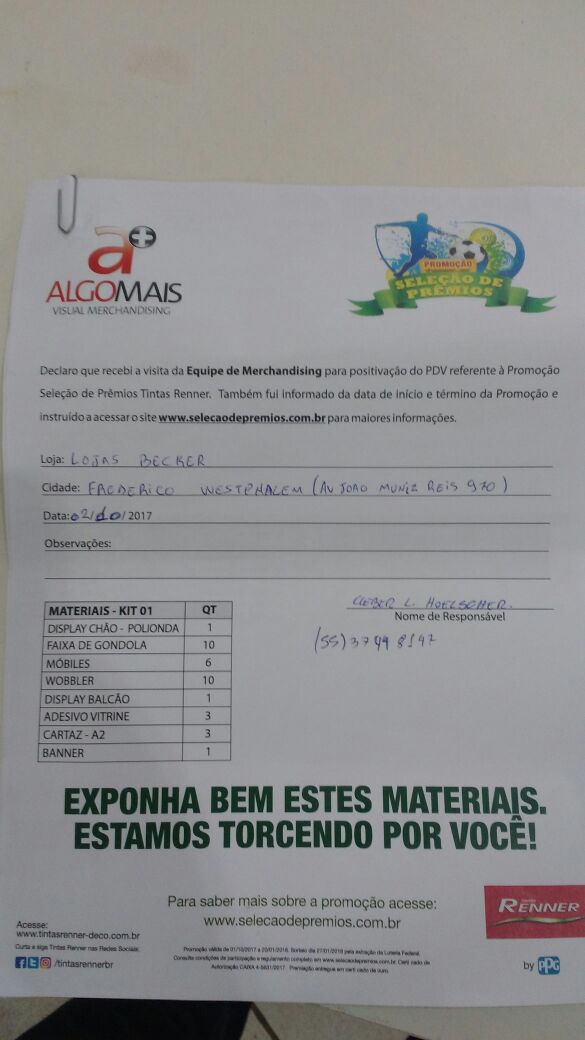 a+
ALGOMAIS
VISUAL MERCHANDISING
PROMOÇÃO
SELEÇÃO DE
PRÊMIOS
Declaro que recebi a visita da Equipe de Merchandising para positivação do PDV referente à Promoção
Seleção de Prêmios Tintas Renner. Também fui informado da data de início e término da Promoção e
instruído a acessar o site www.selecaodepremios.com.br para maiores informações.
Loja: LOJAS BECKER
Cidade: FREDERICO WESTPHALEM (AV JOAO MUNIZ REIS 970)
Data: 02/10/2017
Observações:
CLEBER L. HOELSCHER.
Nome de Responsável
(55) 3744 8147
MATERIAIS - KIT 01 QT
DISPLAY CHÃO - POLIONDA 1
FAIXA DE GONDOLA 10
MÓBILES 6
WOBBLER 10
DISPLAY BALCÃO 1
ADESIVO VITRINE 3
CARTAZ - A2 3
BANNER 1
EXPONHA BEM ESTES MATERIAIS.
ESTAMOS TORCENDO POR VOCÊ!
Para saber mais sobre a promoção acesse:
www.selecaodepremios.com.br
RENNER
Acesse:
www.tintasrenner-deco.com.br
Curta e siga Tintas Renner nas Redes Sociais:
/tintasrennerbr
Promoção válida de 01/10/2017 a 20/01/2018. Sorteio dia 27/01/2018 pela extração da Loteria Federal.
Consulte condições de participação e regulamento completo em www.selecaodepremios.com.br. Certi cado de
Autorização CAIXA 4-5631/2017. Premiação entregue em certi cado de ouro.
by PPG